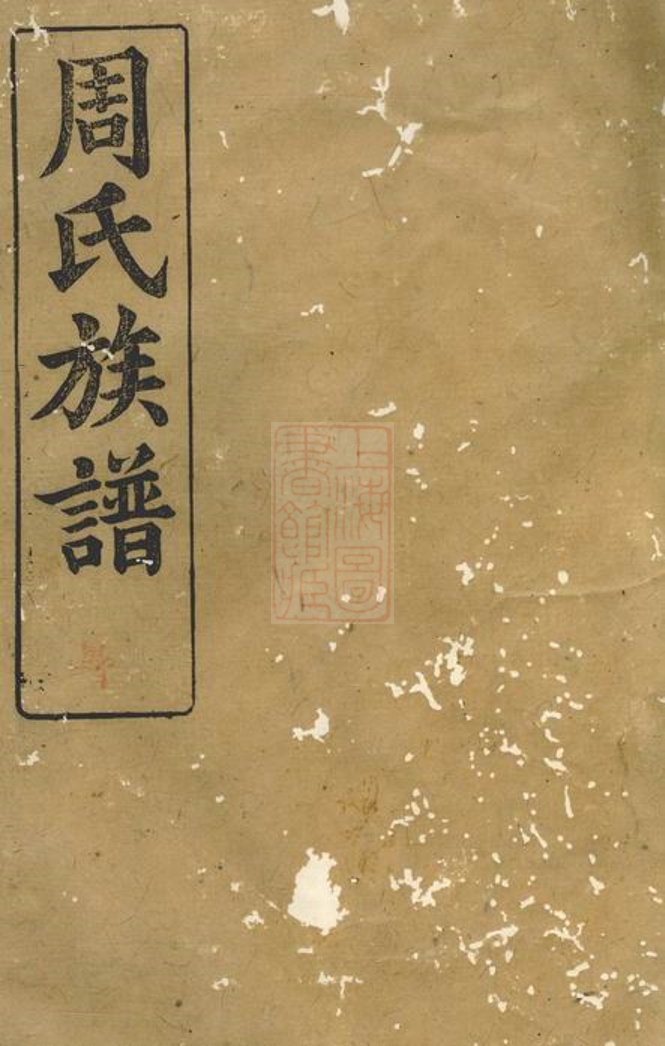 周氏族譜
上海圖
書館藏